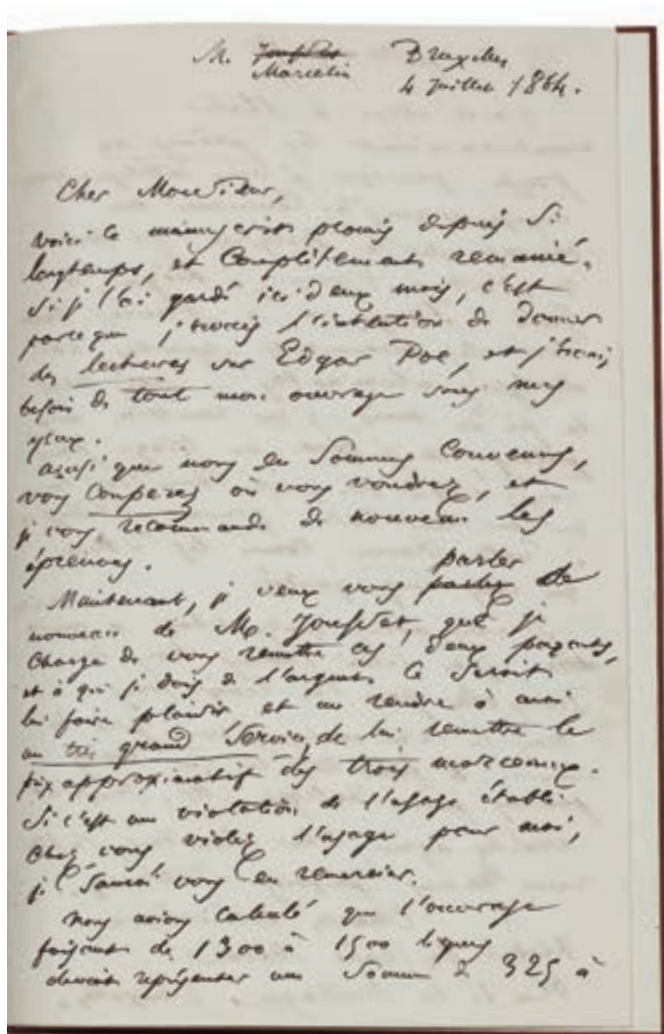 M. Jousset Bruxelles
Marcelin 4 Juillet 1864.
Cher Monsieur,
voici le manuscrit promis depuis si
longtemps, et complètement remanié.
Si je l'ai gardé ici deux mois, c'est
parce que j'avais l'intention de donner
des lectures sur Edgar Poe, et j'avais
besoin de tout mon ouvrage sous mes
yeux.
ainsi que nous en sommes convenus,
vous couperez où vous voudrez, et
je vous recommande de nouveau les
épreuves.
parler
Maintenant, je veux vous parler de
nouveau de M. Jousset, que je
charge de vous remettre ces deux paquets,
et à qui je dois de l'argent. Ce serait
lui faire plaisir et me rendre à moi
un très grand service, de lui remettre le
prix approximatif des trois morceaux.
Si c'est une violation de l'usage établi
chez vous, violez l'usage pour moi,
je saurai vous en remercier.
nous avions calculé que l'ouvrage
faisant de 1300 à 1500 lignes
devait représenter une somme de 325 à